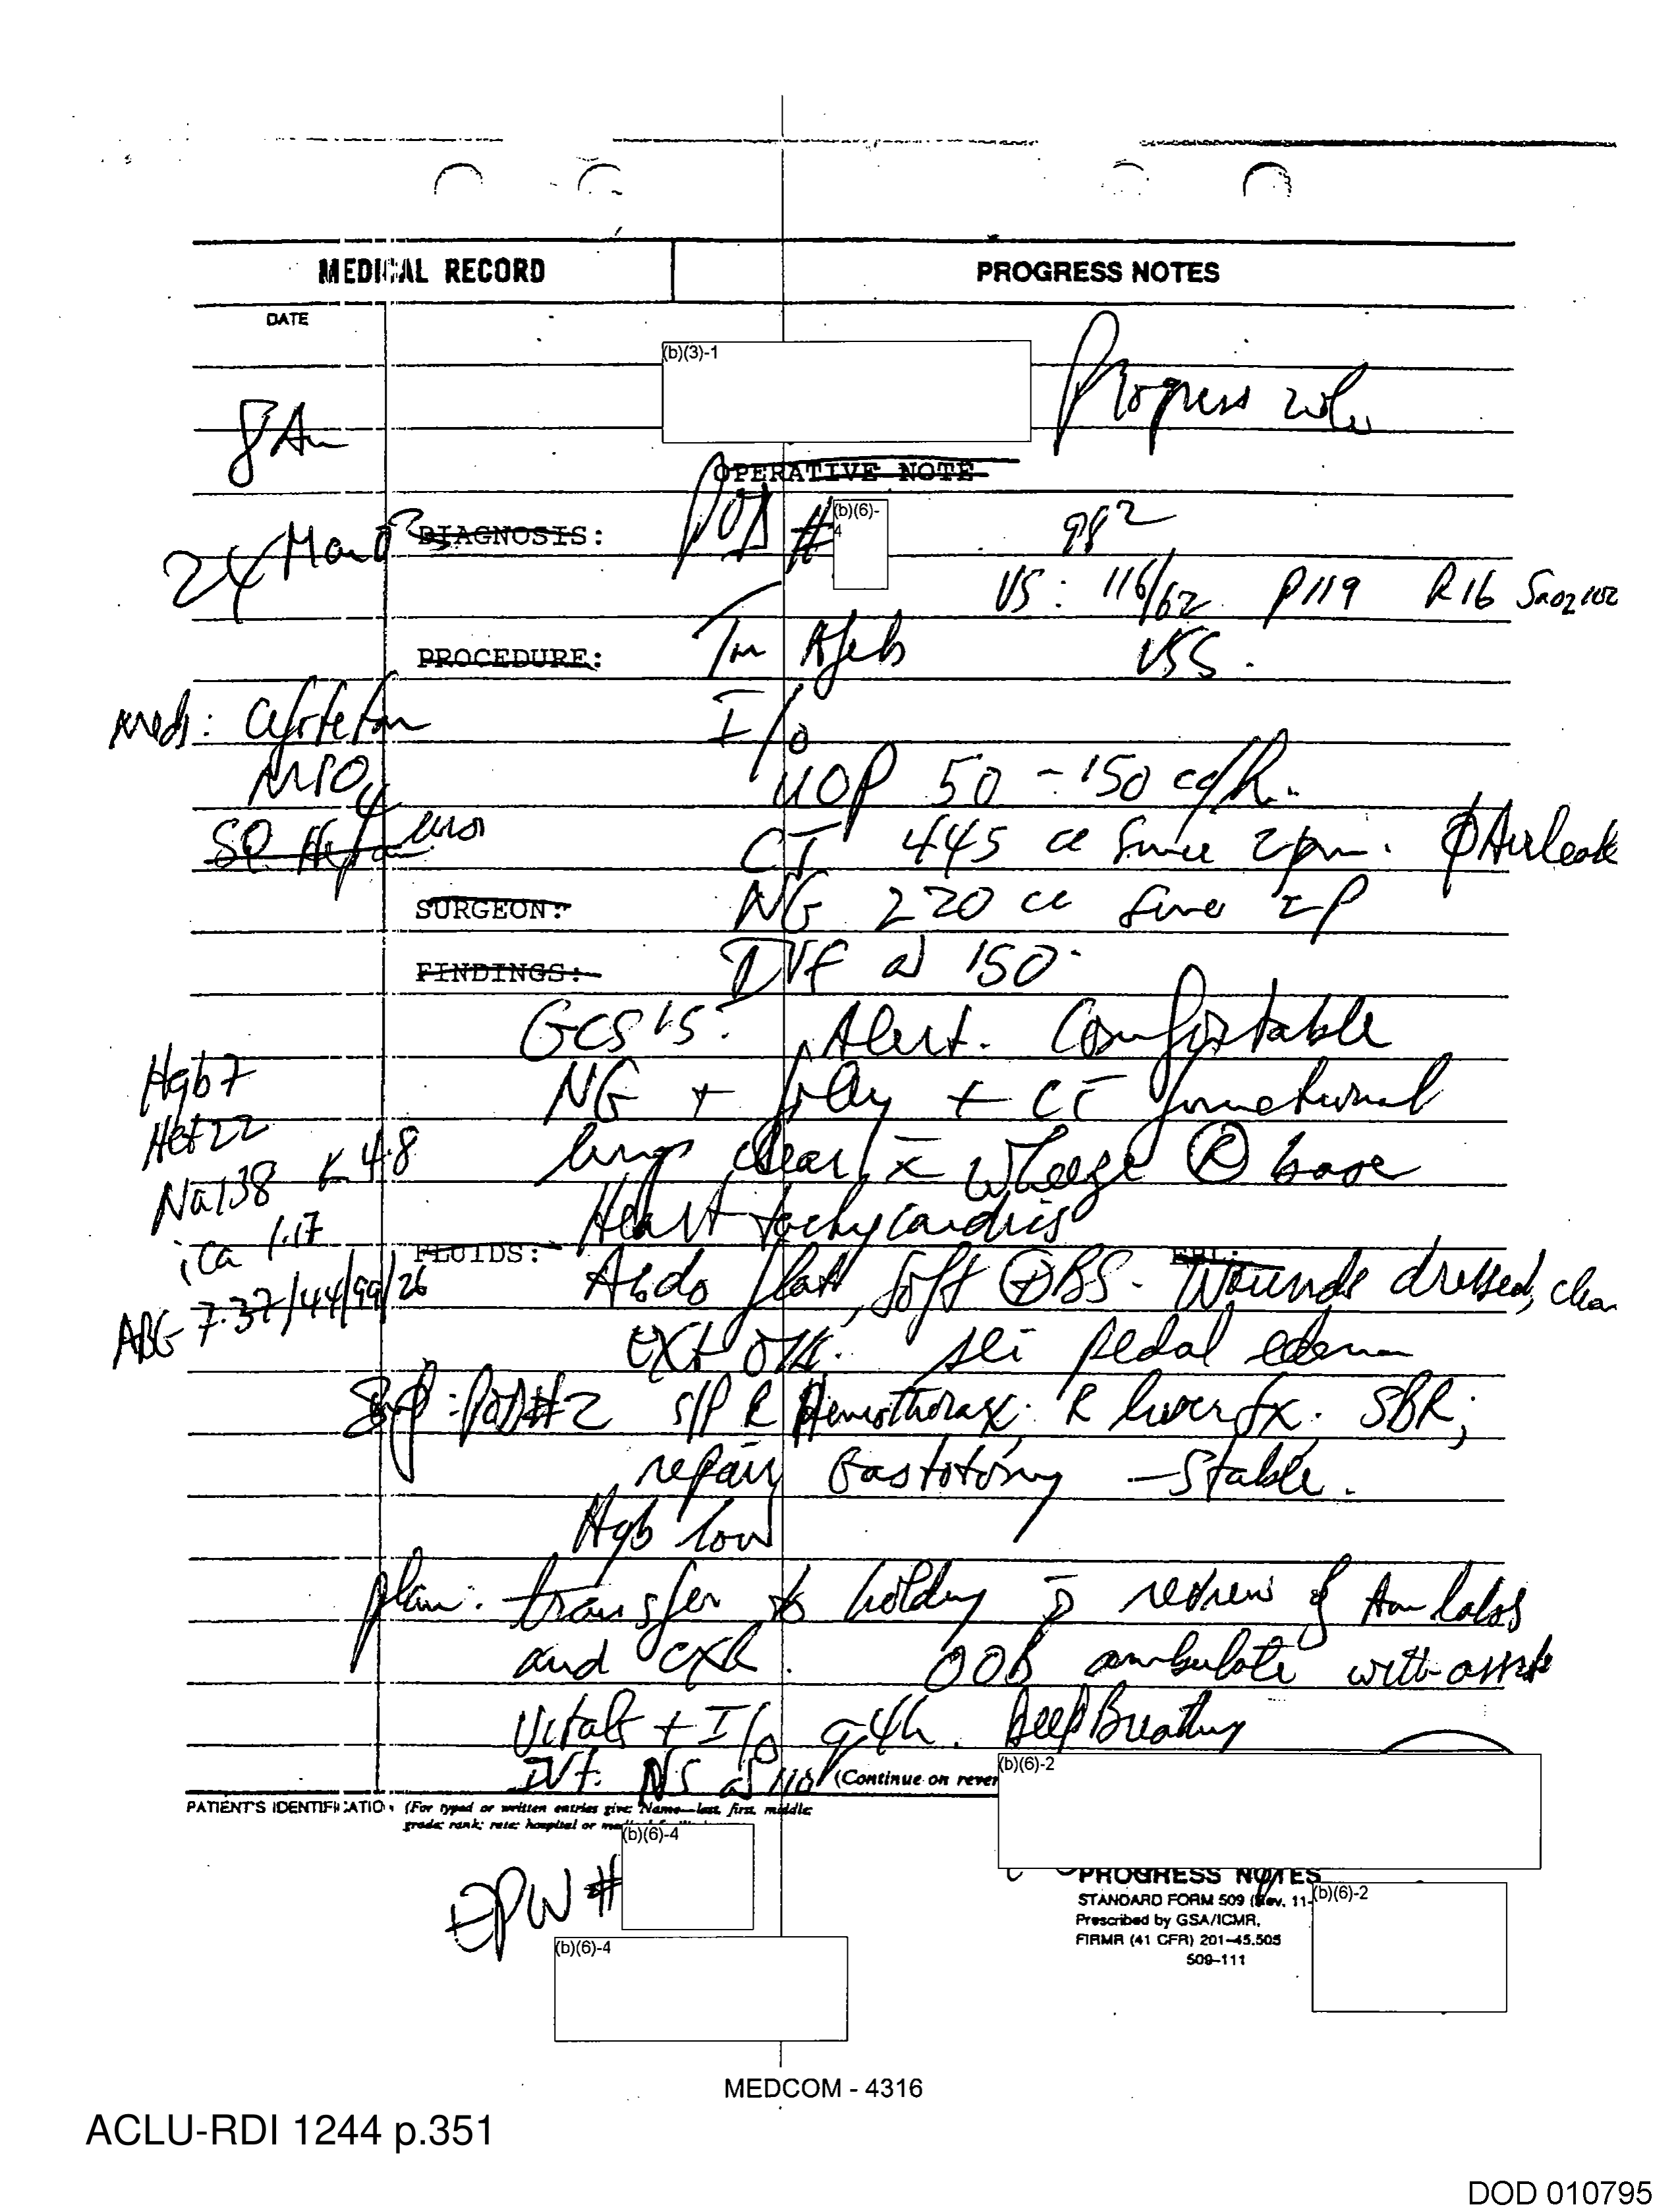 MEDICAL RECORD PROGRESS NOTES
DATE
(b)(3)-1
Progress
8 Am
OPERATIVE NOTE
24 Mar 03 DIAGNOSIS: POD # (b)(6)-4 98²
VS: 116/62 P119 R16 SaO2 100
PROCEDURE: Tm Afeb VSS.
Meds: Cefotetan I/O
MSO4 UOP 50-150 cc/h.
SQ Hep CT 445 cc since 2pm. ϕ Airleak
SURGEON: NG 220 cc since 2P
FINDINGS: IVF at 150
GCS 15. Alert. Comfortable
Hgb 7 NG + foley + CT functional
Hct 22
Na 138 K 4.8 lungs clear, c̄ wheeze Ⓡ base
iCa 1.17 Heart tachycardic
FLUIDS: EBL:
ABG 7.37/44/99/26 Abdo flat, soft ⊕BS. Wounds dressed, clean
ext OK. sli pedal edema
POD#2 S/P R Hemothorax; R liver fx; SBR;
repair Gastotomy - Stable.
Hgb low
plan: transfer to holding p̄ review of Am labs
and CXR. OOB ambulate with assist
Vitals + I/O q4h. Deep Breathing
IVF. NS at 110 (Continue on rever
(b)(6)-2
PATIENT'S IDENTIFICATION (For typed or written entries give: Name—last, first, middle;
grade; rank; rate; hospital or me
(b)(6)-4
EPW #
(b)(6)-4
PROGRESS NOTES
STANDARD FORM 509 (Rev. 11-
(b)(6)-2
Prescribed by GSA/ICMR,
FIRMR (41 CFR) 201-45.505
509-111
MEDCOM - 4316
ACLU-RDI 1244 p.351
DOD 010795